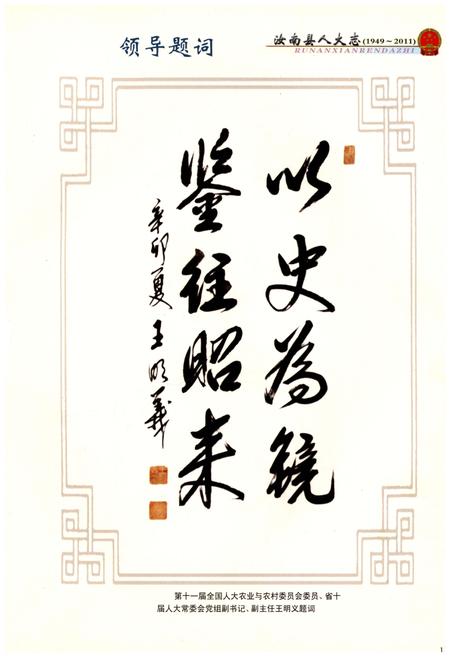 领导题词
汝南县人大志(1949～2011)
RUNANXIANRENDAZHI
以史为镜
鉴往昭来
辛卯夏 王明义
第十一届全国人大农业与农村委员会委员、省十
届人大常委会党组副书记、副主任王明义题词
1